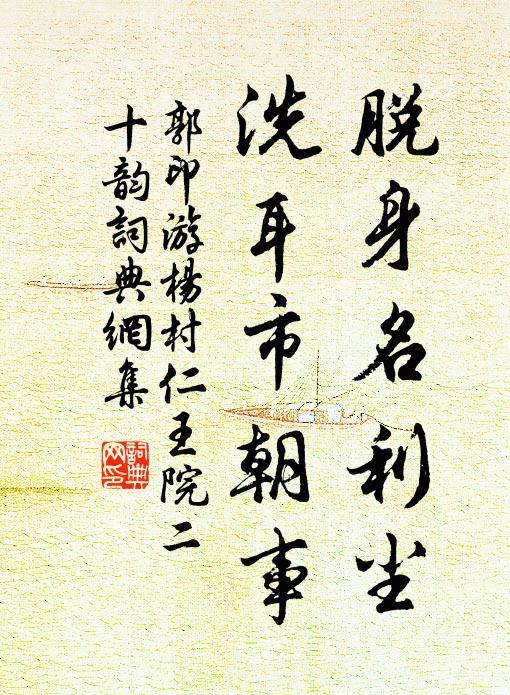 脱身名利尘
洗耳市朝事
郭印游楊村仁王院二
十韵詞典網集
詞典
网印